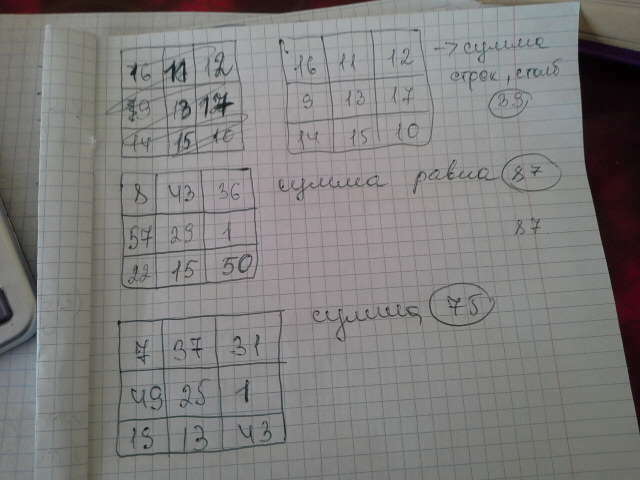 16 11 12
13 17
14 15 10
16 11 12
9 13 17
14 15 10
→ сумма
строк, столб
39
8 43 36
57 29 1
22 15 50
сумма равна 87
87
7 37 31
49 25 1
19 13 43
сумма 75